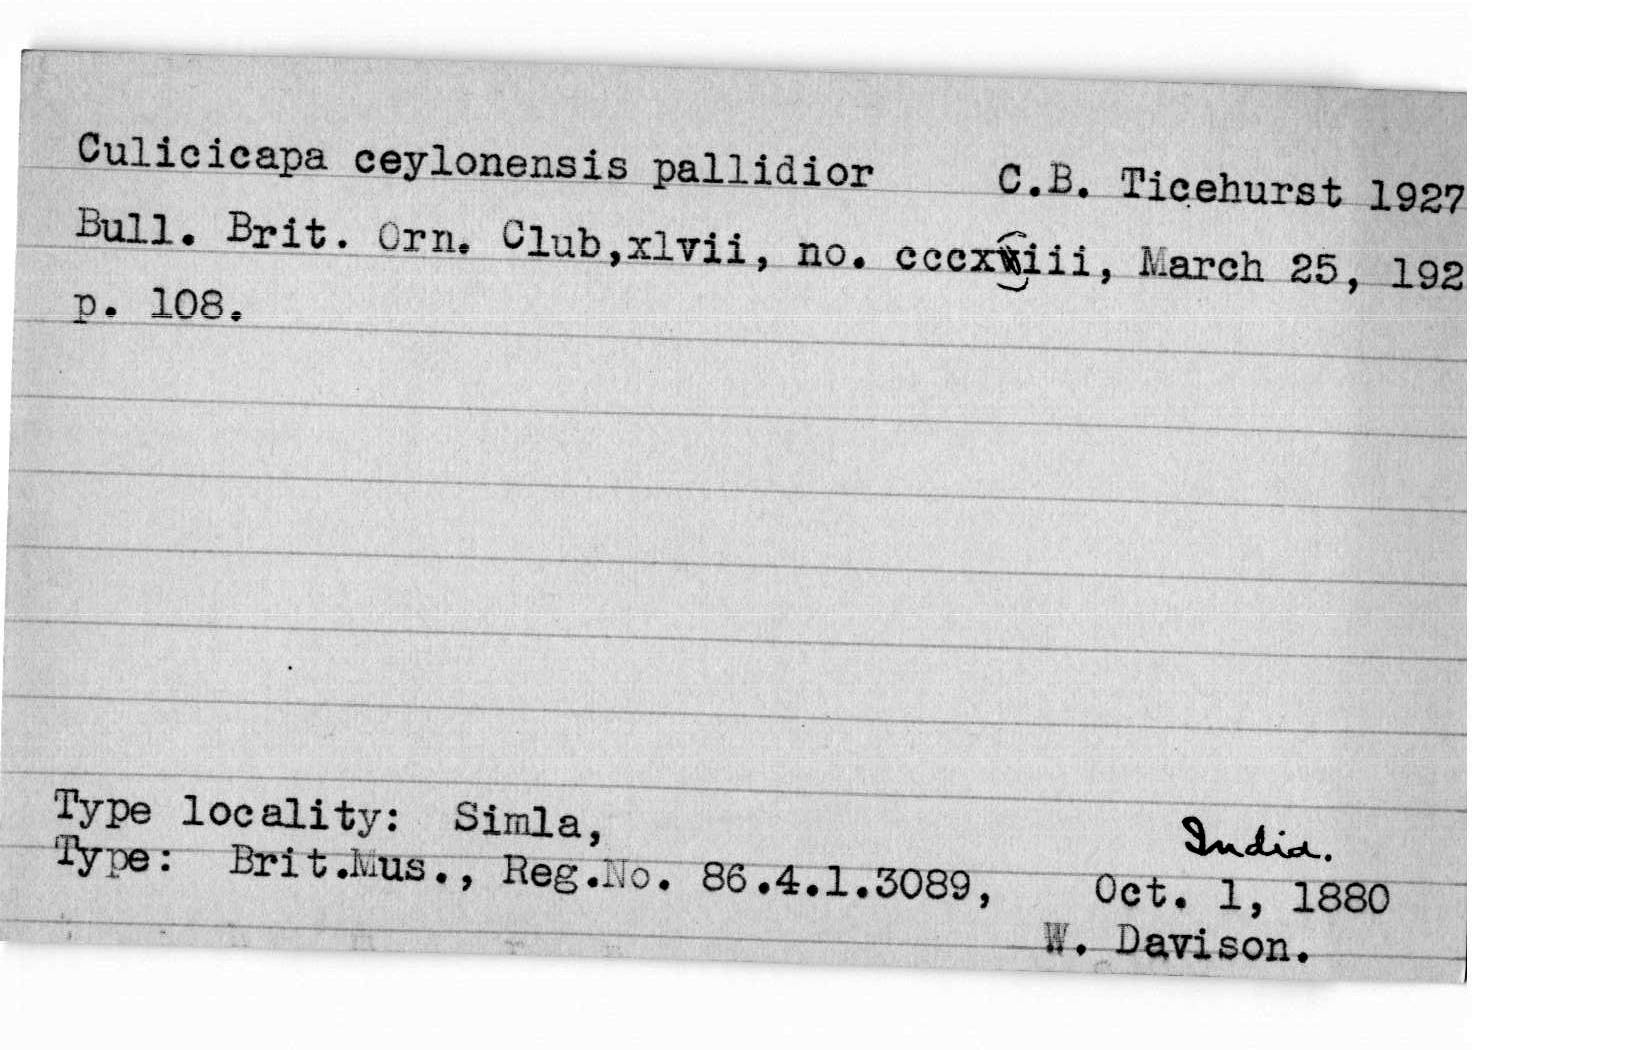 Culicicapa ceylonensis pallidior C.B. Ticehurst 1927
Bull. Brit. Orn. Club,xlvii, no. March 25, 192
p. 108.
Type locality: Simla, India.
Type: Brit.Mus., Reg.No. 86.4.1.3089, Oct. 1, 1880
W. Davison.